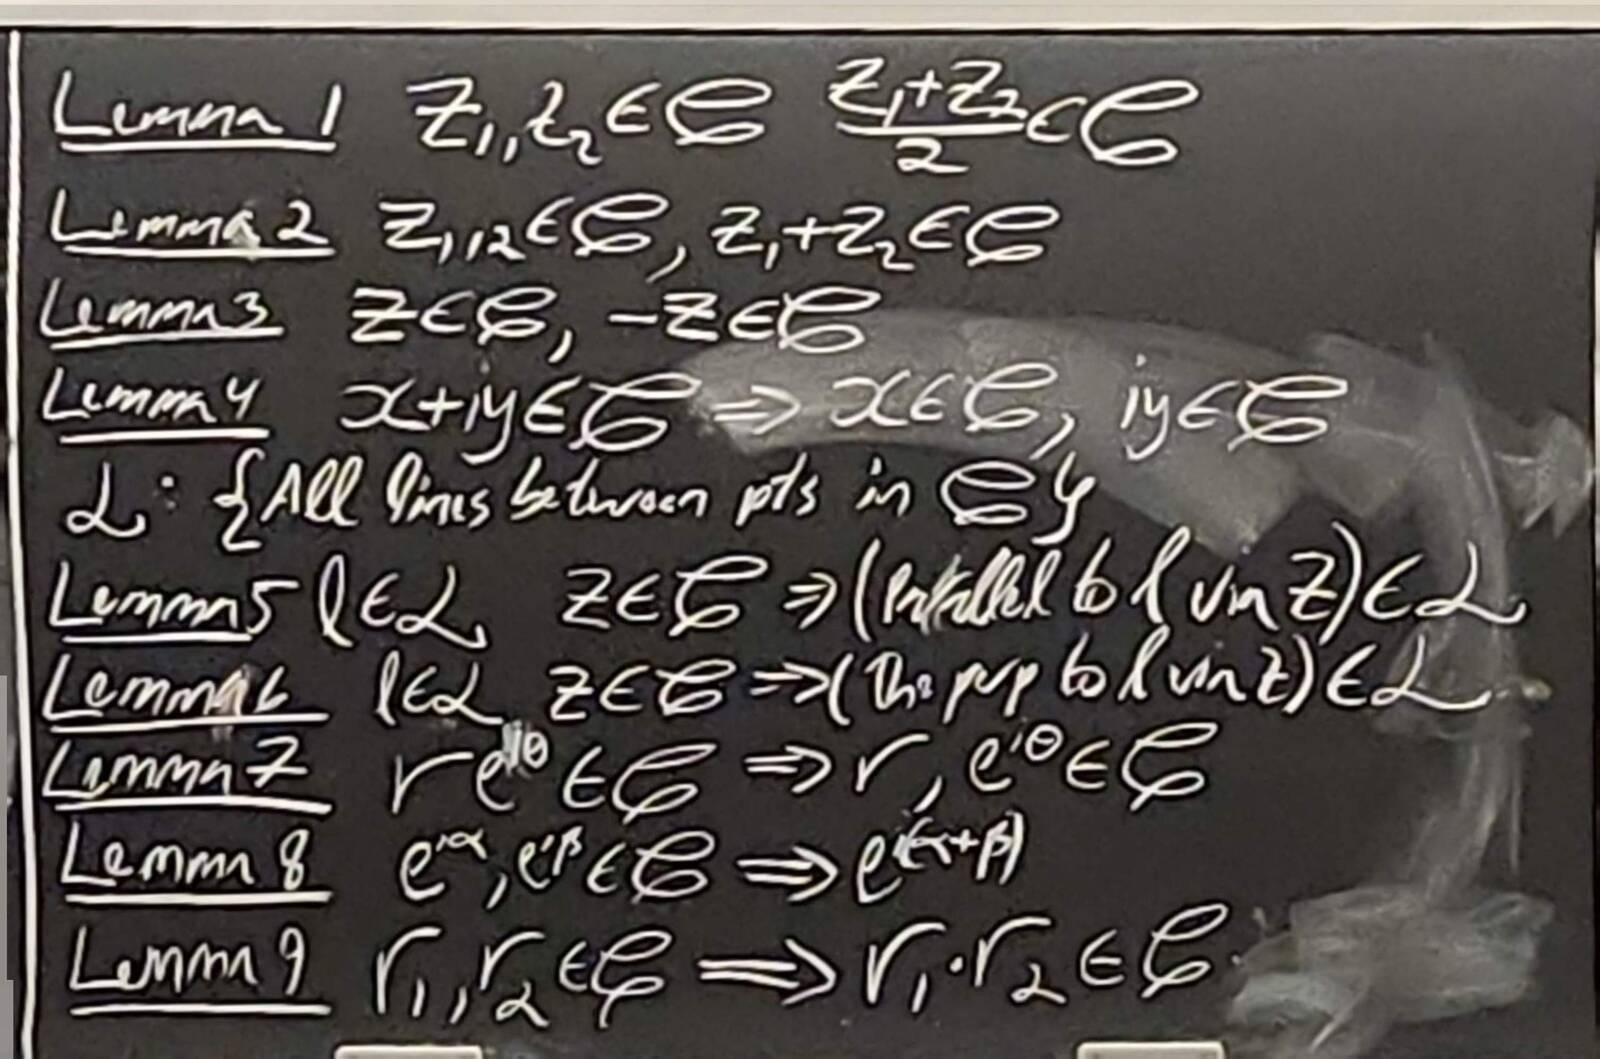 Lemma 1 z₁, z₂ ∈ 𝒞 (z₁+z₂)/2 ∈ 𝒞
Lemma 2 z₁,₂ ∈ 𝒞, z₁+z₂ ∈ 𝒞
Lemma 3 z ∈ 𝒞, -z ∈ 𝒞
Lemma 4 x+iy ∈ 𝒞 ⇒ x ∈ 𝒞, iy ∈ 𝒞
ℒ: {All lines between pts in 𝒞}
Lemma 5 l ∈ ℒ, z ∈ 𝒞 ⇒ (Parallel to l via z) ∈ ℒ
Lemma 6 l ∈ ℒ z ∈ 𝒞 ⇒ (The perp to l via z) ∈ ℒ
Lemma 7 re^{iθ} ∈ 𝒞 ⇒ r, e^{iθ} ∈ 𝒞
Lemma 8 e^{iα}, e^{iβ} ∈ 𝒞 ⇒ e^{i(α+β)}
Lemma 9 r₁, r₂ ∈ 𝒞 ⇒ r₁·r₂ ∈ 𝒞